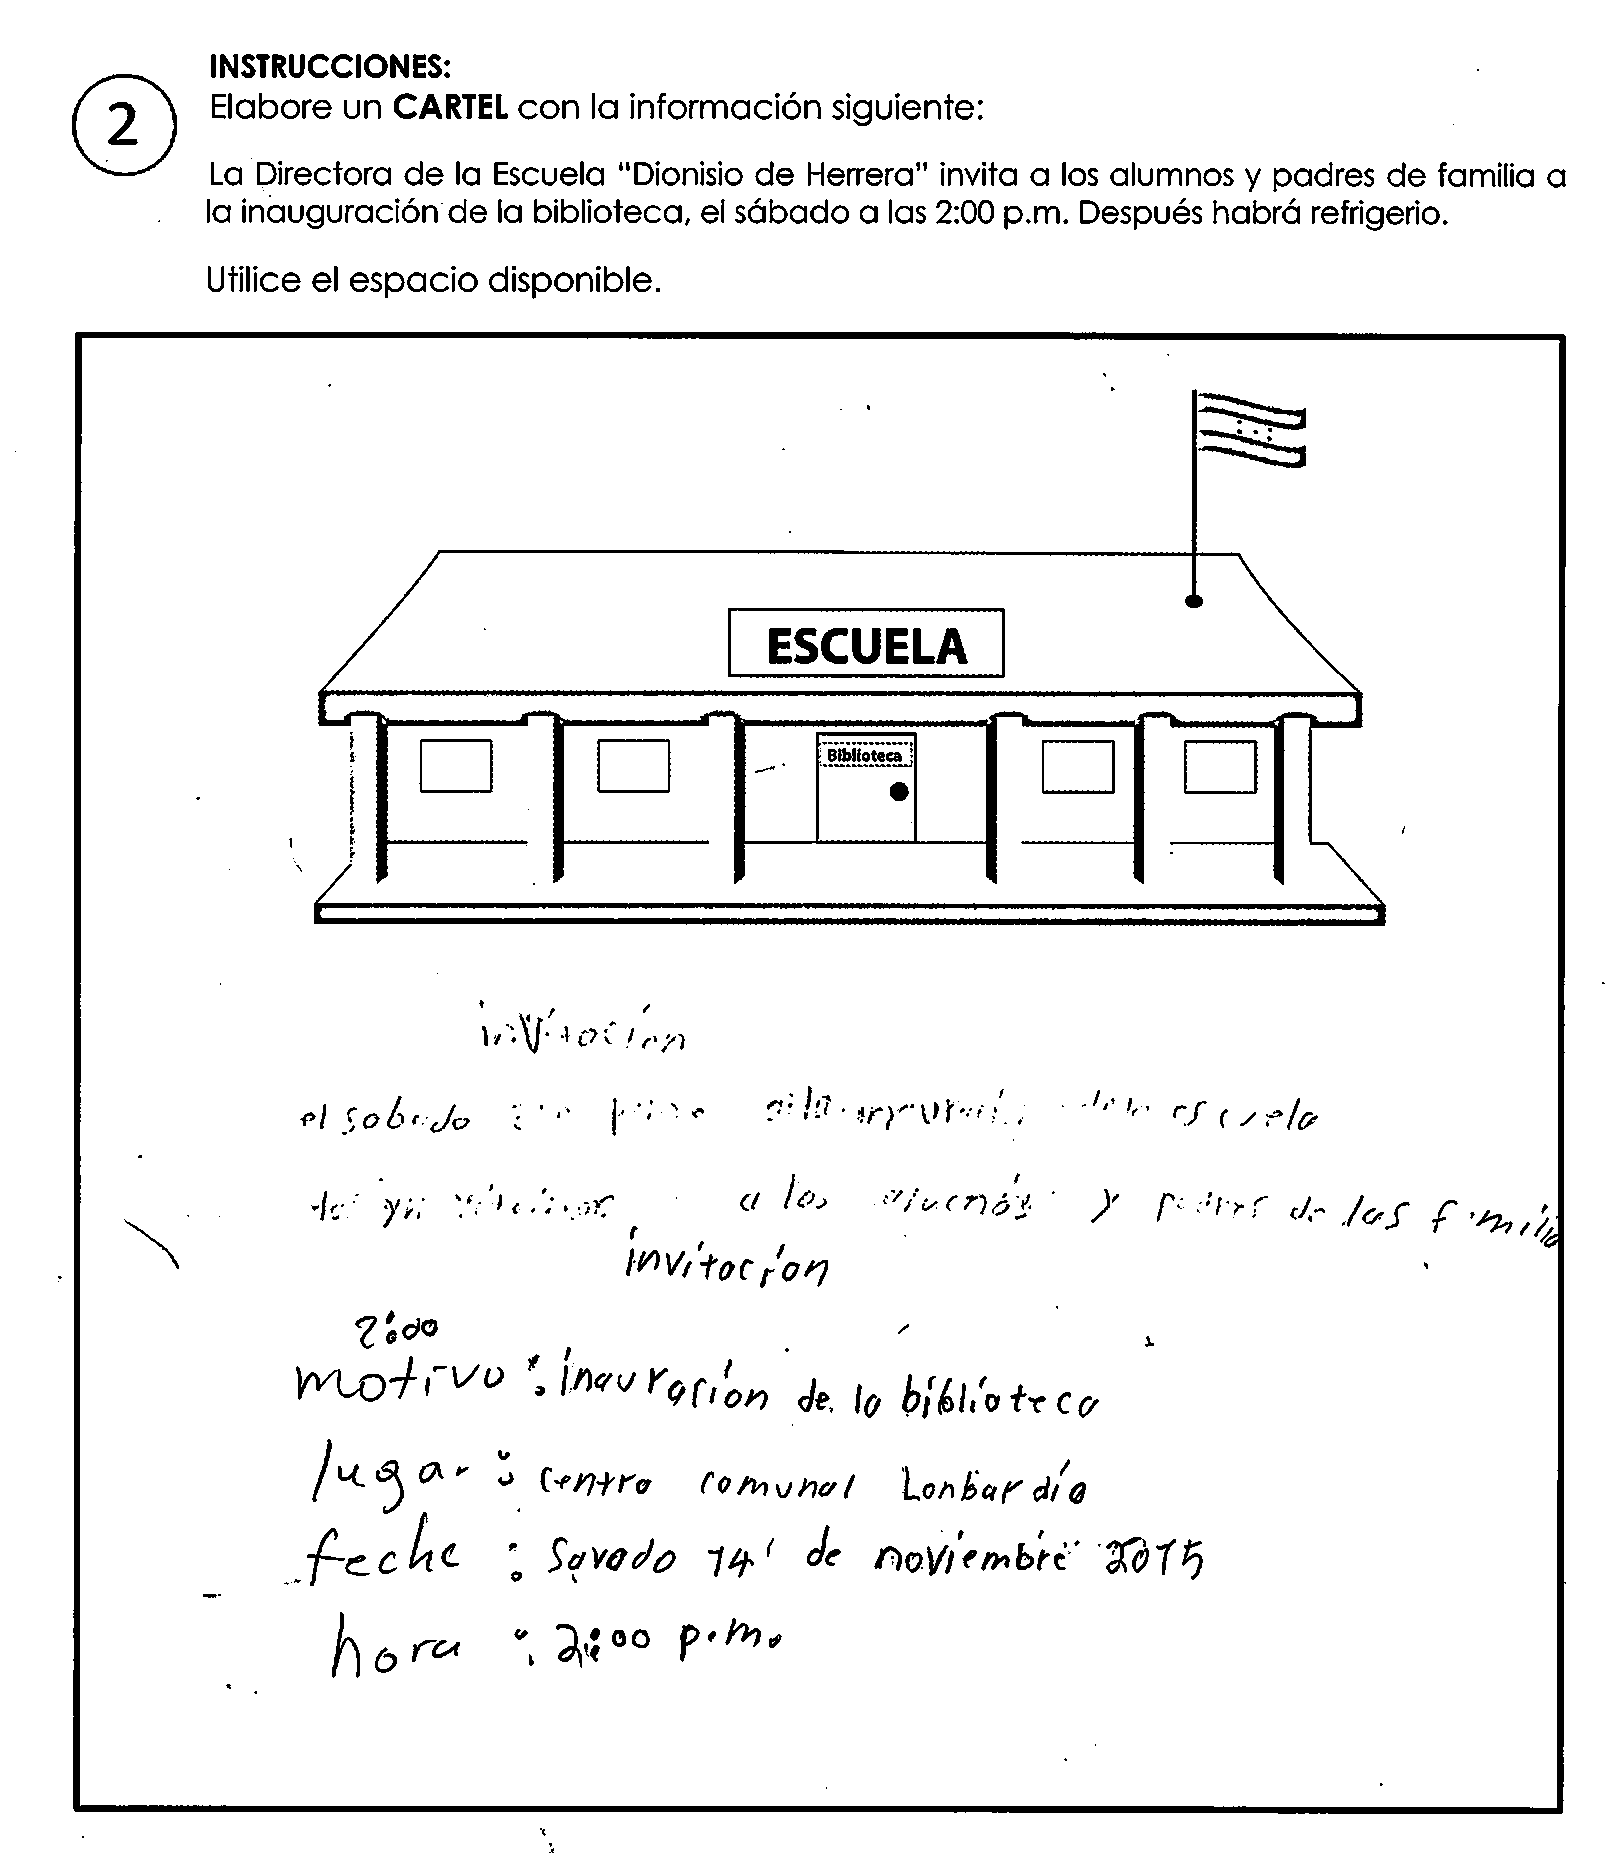 INSTRUCCIONES:
2
Elabore un CARTEL con la información siguiente:
La Directora de la Escuela "Dionisio de Herrera" invita a los alumnos y padres de familia a
la inauguración de la biblioteca, el sábado a las 2:00 p.m. Después habrá refrigerio.
Utilice el espacio disponible.
ESCUELA
Biblioteca
invitación
el sabado escuela
a los y padres de las familia
invitación
2:00
motivo : inauración de la biblioteca
lugar : centro comunal Lonbardía
feche : Savado 14 de noviembre 2015
hora : 2:00 p.m.